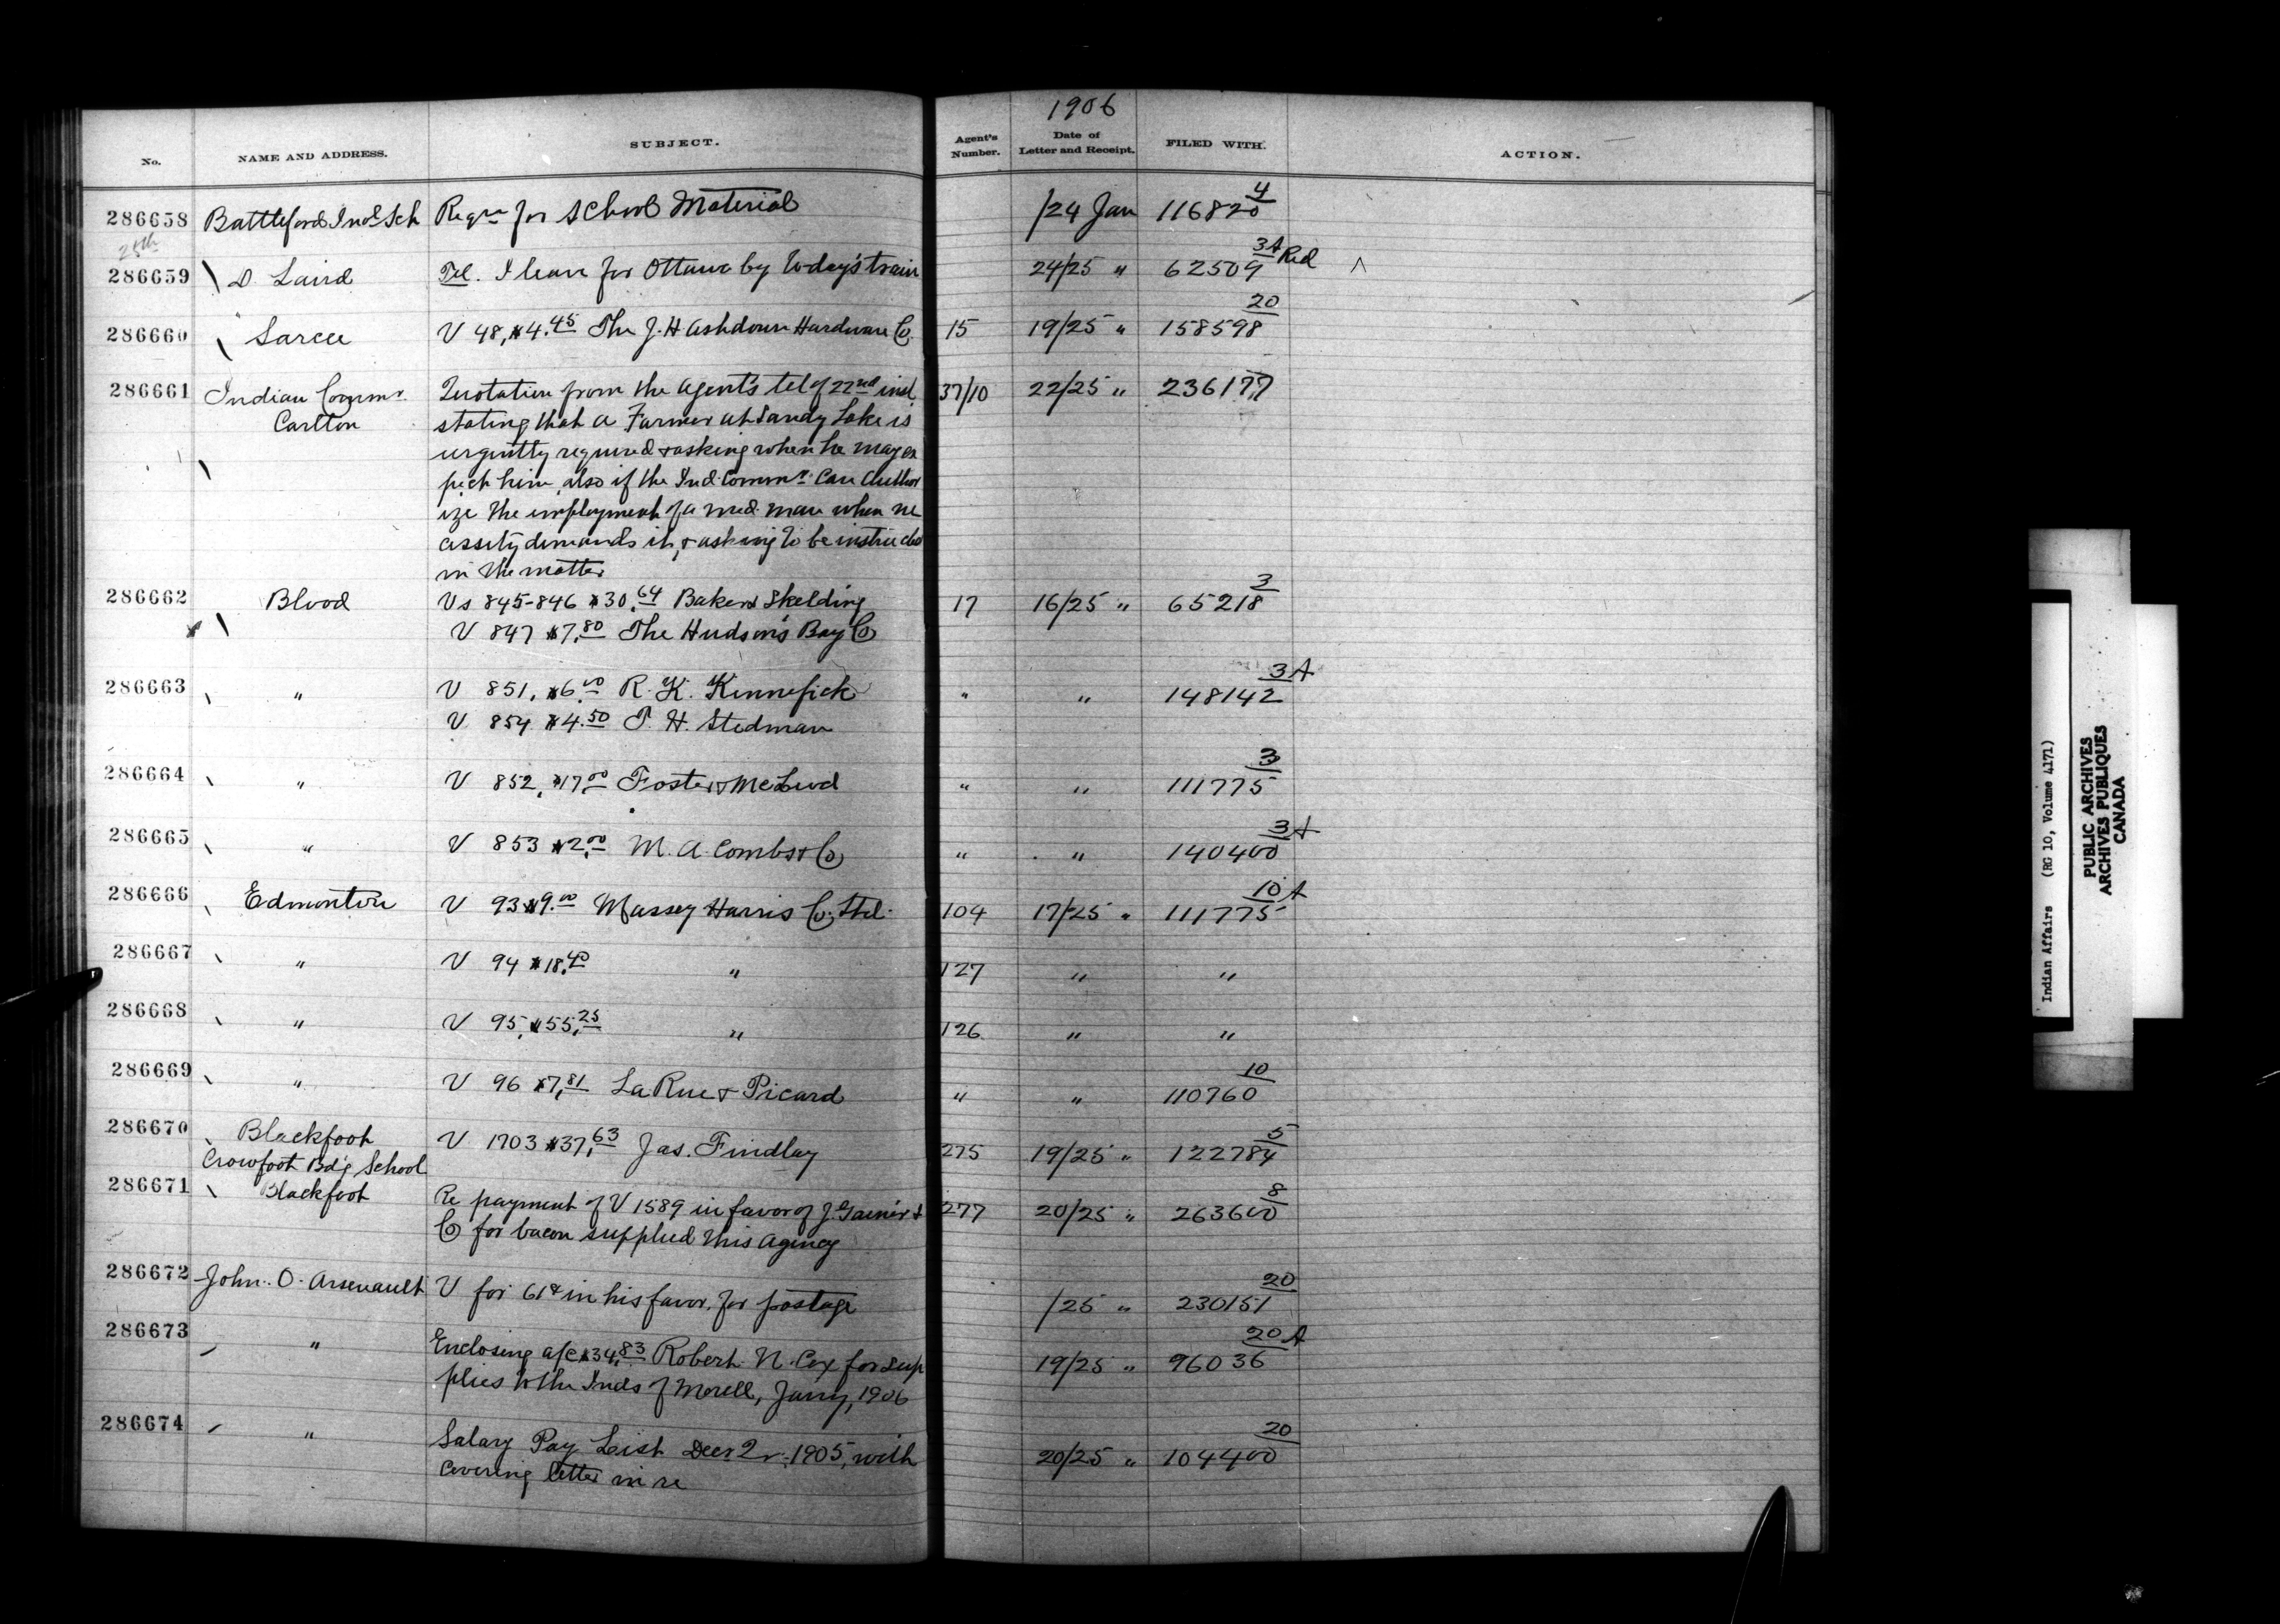 1906
No. NAME AND ADDRESS. SUBJECT. Agent's Number. Date of Letter and Receipt. FILED WITH. ACTION.
286658 Battleford Ind. Sch Reqn for School Material /24 Jan 116820 4
25th
286659 D. Laird Tel. I leave for Ottawa by today's train 24/25 " 62509 3A Red
286660 Sarcee V 48, $4.45 The J. H Ashdown Hardware Co. 15 19/25 " 158598 20
286661 Indian Commr. Quotation from the Agent's tel of 22nd inst. 37/10 22/25 " 236177
Carlton stating that a Farmer at Sandy Lake is
urgently required & asking when he may ex
pect him, also if the Ind. Commr. can author
ize the employment of a med. man when ne
cessity demands it, & asking to be instructed
in the matter
286662 Blood Vs 845-846 $30.64 Baker & Skelding 17 16/25 " 65218 3
V 847 $7.80 The Hudson's Bay Co
286663 " V 851, $6.00 R. K. Kinnefick " " 148142 3A
V 854 $4.50 T. H. Stedman
286664 " V 852, $17.00 Foster & McLeod " " 111775 3
286665 " V 853 $2.00 M. A. Combs & Co " " 140400 3A
286666 Edmonton V 93 $9.00 Massey Harris Co. Ltd. 104 17/25 " 111775 10A
286667 " V 94 $18.40 " 127 " "
286668 " V 95, $55.25 " 126 " "
286669 " V 96 $7.81 La Rue & Picard " " 110760 10
286670 Blackfoot V 1703 $37.63 Jas. Findlay 275 19/25 " 122784 5
Crowfoot Bd'g School
286671 Blackfoot Re payment of V 1589 in favor of J. Gainer & 277 20/25 " 263600 8
Co for bacon supplied this agency
286672 John. O. Arsenault V for 61¢ in his favor, for postage /25 " 230151 20
286673 " Enclosing a/c $34.83 Robert N. Cox for sup 19/25 " 96036 20A
plies to the Inds of Morell, Jany, 1906
286674 " Salary Pay List Decr 1905, with 20/25 " 104400 20
covering letter in re
Indian Affairs (RG 10, Volume 4171)
PUBLIC ARCHIVES
ARCHIVES PUBLIQUES
CANADA